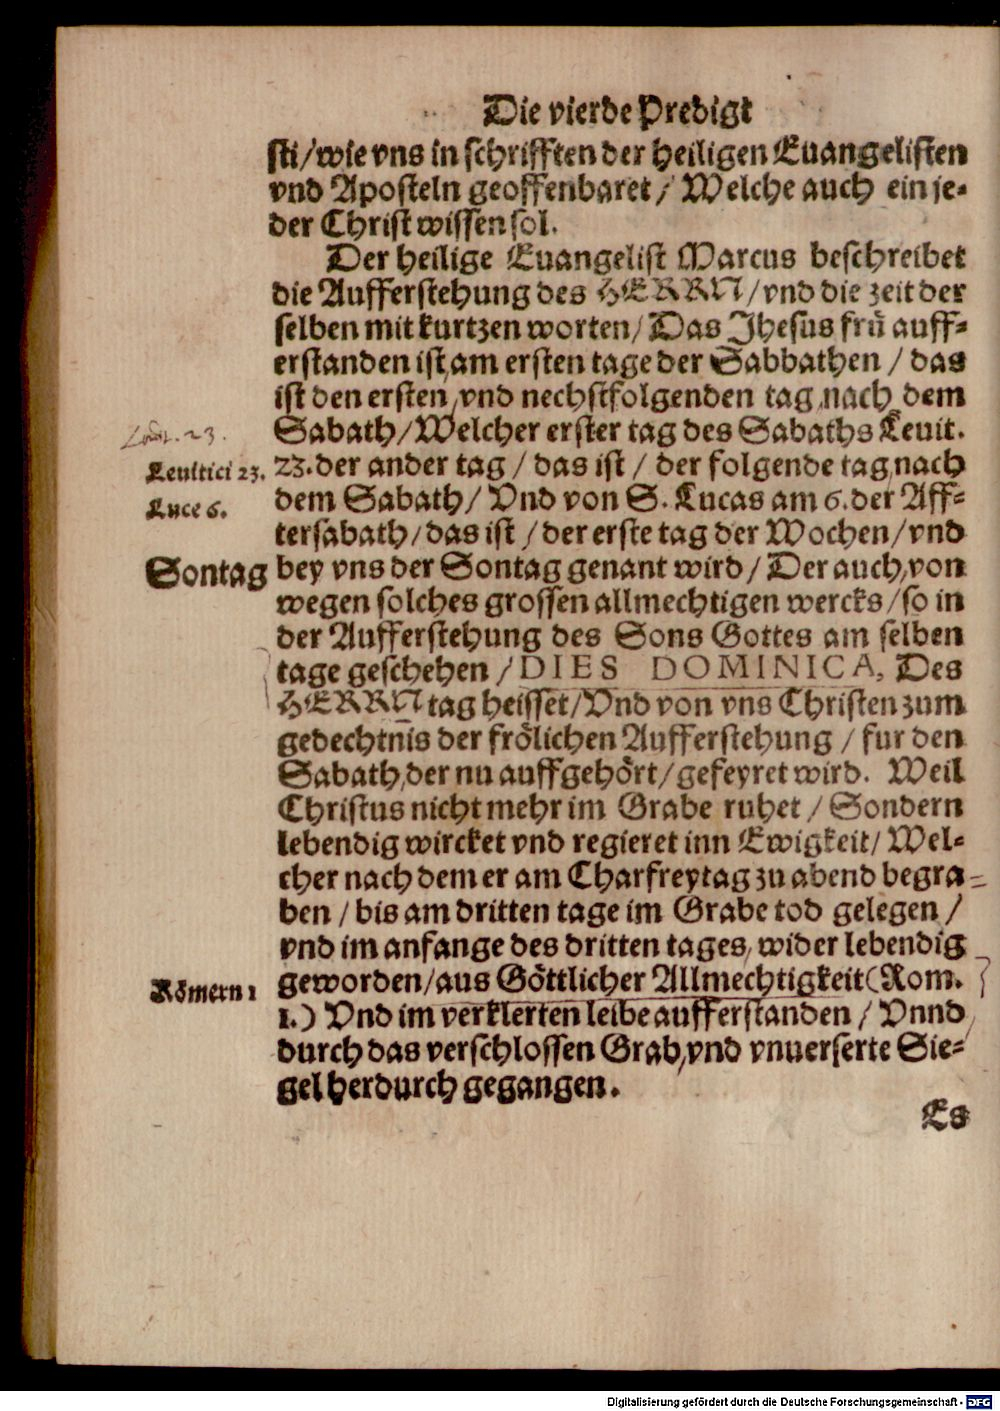 Die vierde Predigt
sti/wie vns in schrifften der heiligen Euangelisten
vnd Aposteln geoffenbaret / Welche auch ein je-
der Christ wissen sol.
Der heilige Euangelist Marcus beschreibet
die Aufferstehung des HERRN/vnd die zeit der
selben mit kurtzen worten/ Das Jhesus frü auff-
erstanden ist, am ersten tage der Sabbathen / das
ist den ersten, vnd nechstfolgenden tag, nach dem
Sabath/Welcher erster tag des Sabaths Leuit.
Leuitici 23. 23. der ander tag / das ist / der folgende tag, nach
Luce 6. dem Sabath/ Vnd von S. Lucas am 6. der Aff-
tersabath/das ist / der erste tag der Wochen/vnd
Sontag bey vns der Sontag genant wird/ Der auch, von
wegen solches grossen allmechtigen wercks/so in
der Aufferstehung des Sons Gottes am selben
tage geschehen / DIES DOMINICA, Des
HERRN tag heisset/Vnd von vns Christen zum
gedechtnis der frölichen Aufferstehung / fur den
Sabath, der nu auffgehört/gefeyret wird. Weil
Christus nicht mehr im Grabe ruhet / Sondern
lebendig wircket vnd regieret inn Ewigkeit/ Wel-
cher nach dem er am Charfreytag zu abend begra-
ben / bis am dritten tage im Grabe tod gelegen /
vnd im anfange des dritten tages, wider lebendig
Römern 1 geworden/aus Göttlicher Allmechtigkeit (Rom.
1.) Vnd im verklerten leibe aufferstanden / Vnnd
durch das verschlossen Grab, vnd vnuerserte Sie-
gel herdurch gegangen.
Es
Digitalisierung gefördert durch die Deutsche Forschungsgemeinschaft - DFG